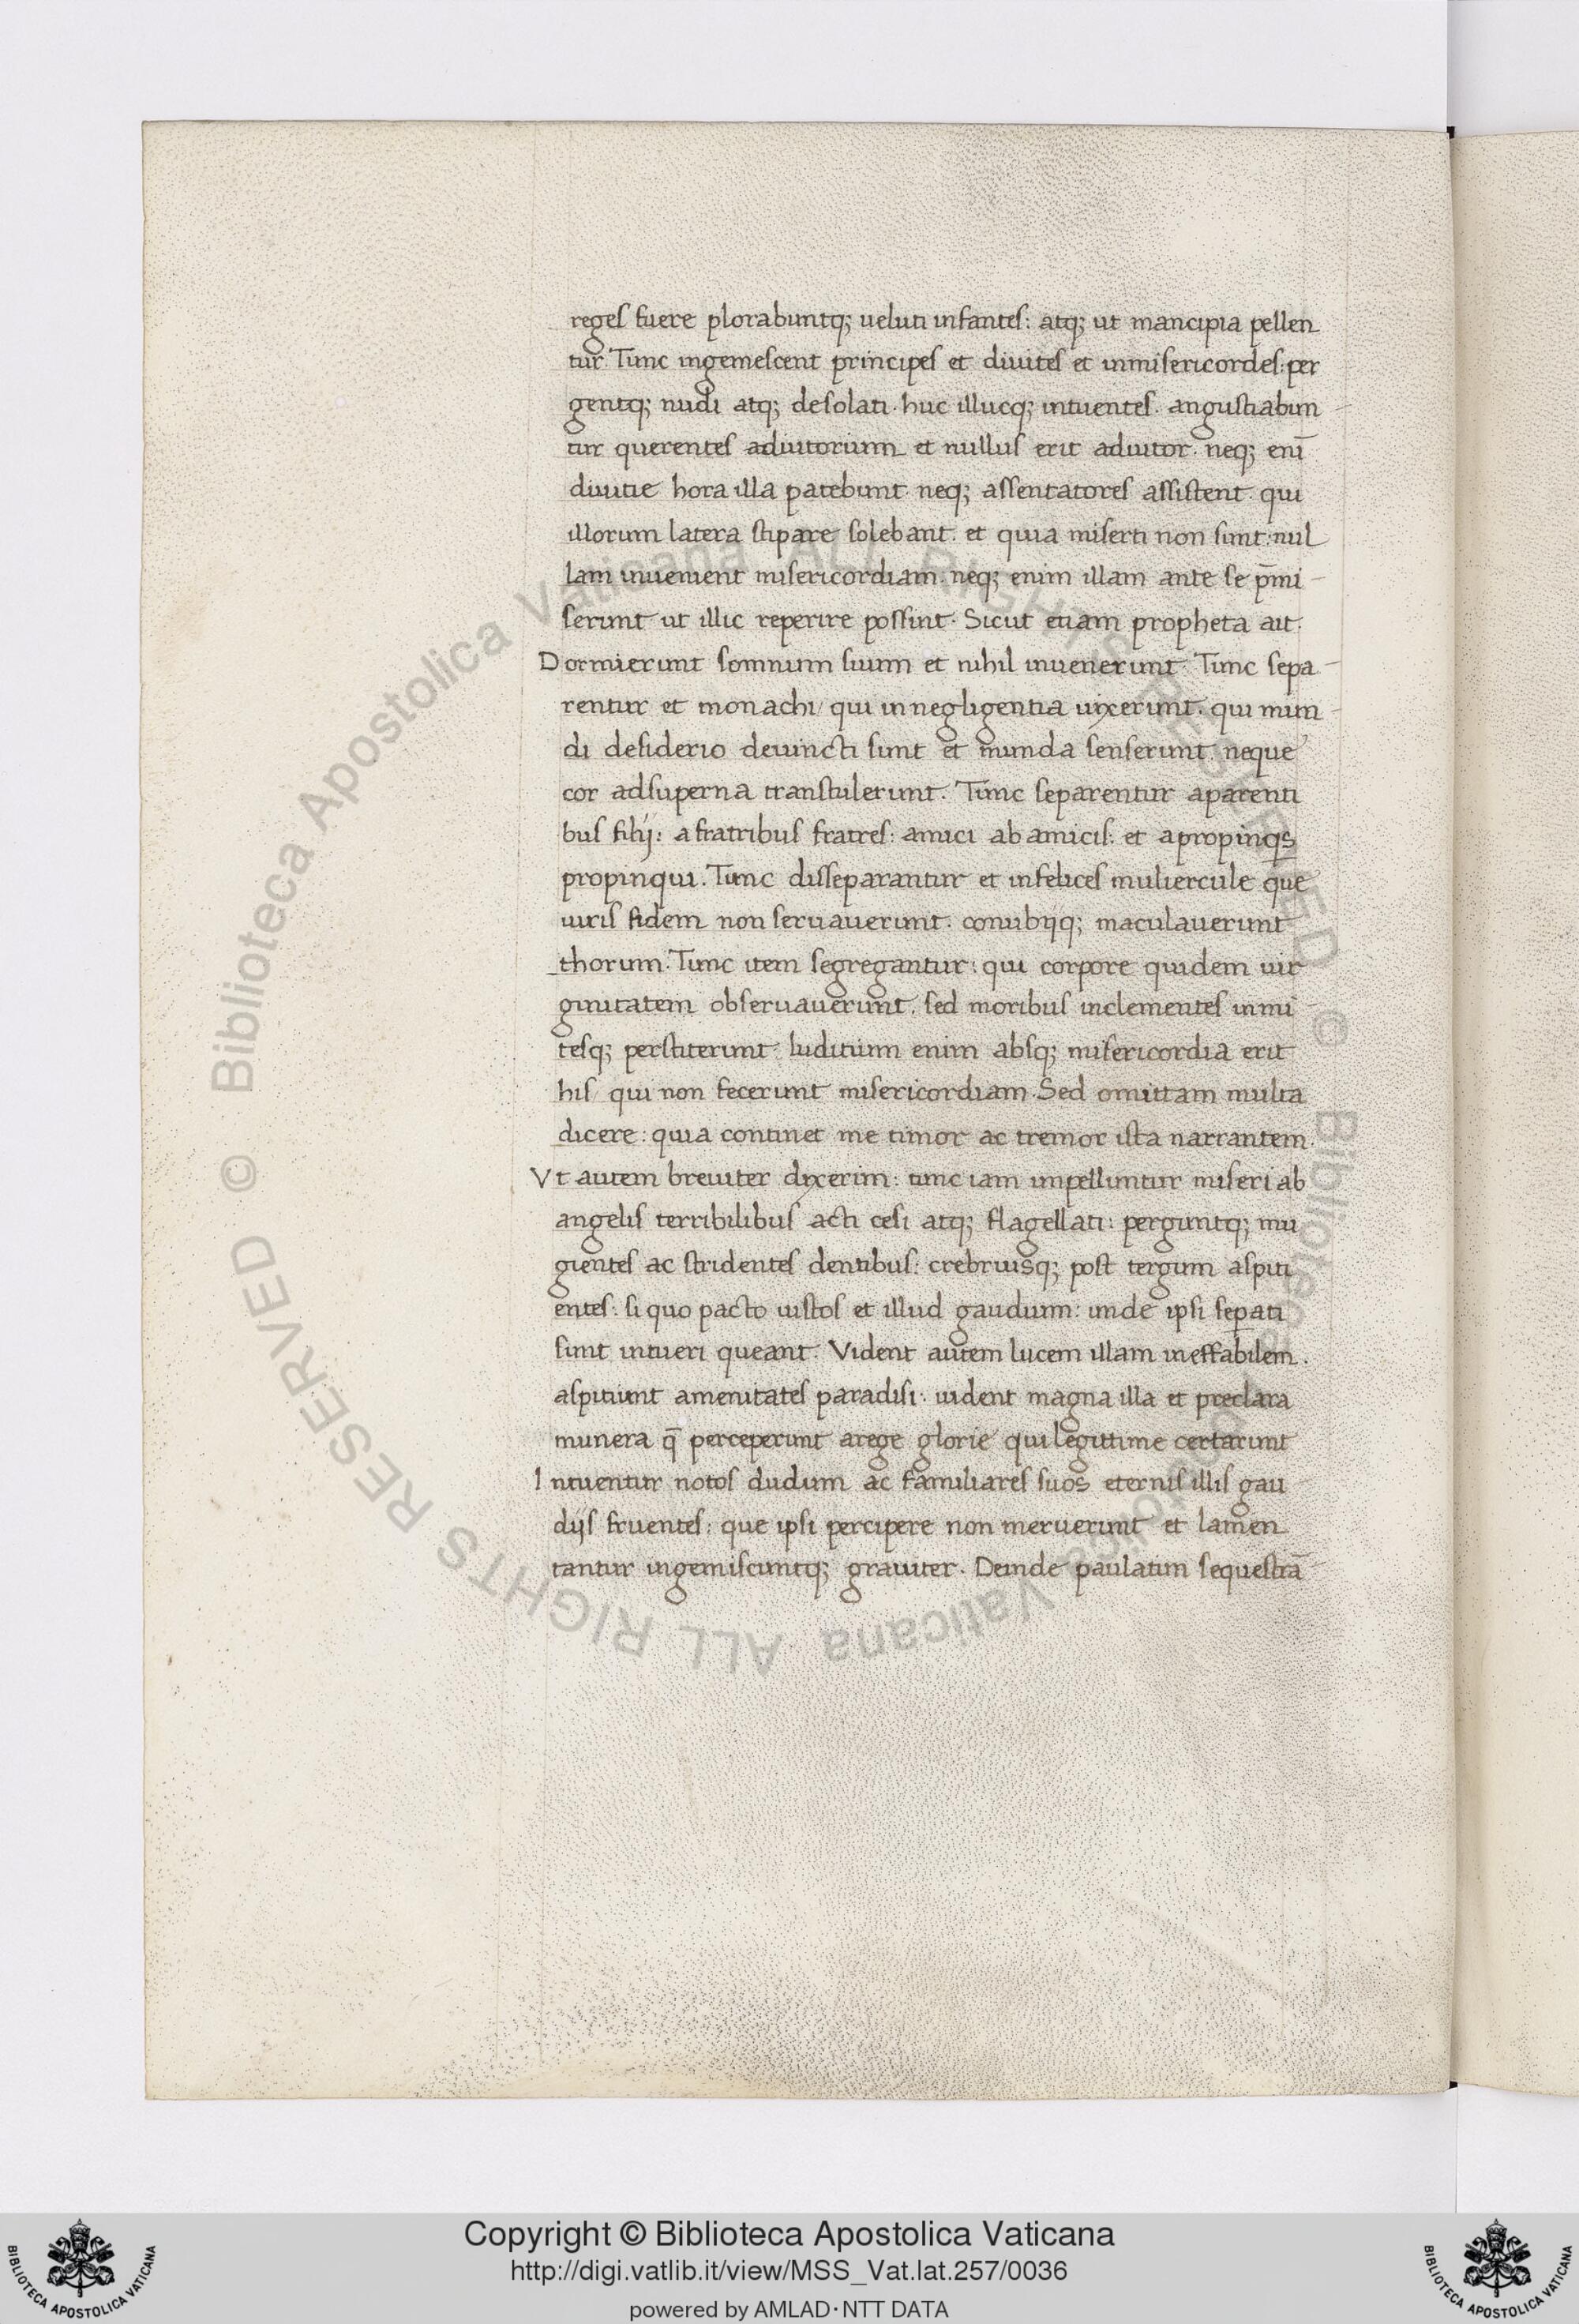 reges fuere plorabuntq; ueluti infantes: atq; ut mancipia pellen
tur. Tunc ingemescent principes et diuites et inmisericordes: per
gentq; nudi atq; desolati. huc illucq; intuentes. angustiabun-
tur querentes adiutorium et nullus erit adiutor. neq; eni̅
diuitie hora illa patebunt. neq; assentatores assistent. qui
illorum latera stipare solebant. et quia miserti non sunt: nul
lam inuenient misericordiam. neq; enim illam ante se p̅mi-
serunt ut illic reperire possint. Sicut etiam propheta ait.
Dormierunt somnum suum et nihil inuenerunt. Tunc sepa-
rentur et monachi/ qui in negligentia uixerunt. qui mun-
di desiderio deuincti sunt et munda senserunt. neque
cor ad superna transtulerunt. Tunc separentur a parenti
bus filij: a fratribus fratres: amici ab amicis: et a propinqs
propinqui. Tunc disseparantur et infelices muliercule que
uiris fidem non seruauerunt. conubijq; maculauerunt
thorum. Tunc item segregantur: qui corpore quidem uir
ginitatem obseruauerunt. sed moribus inclementes inmi-
tesq; perstiterunt. Iuditium enim absq; misericordia erit
his/ qui non fecerunt misericordiam. Sed omittam multa
dicere: quia continet me timor ac tremor ista narrantem.
Vt autem breuiter dixerim: tunc iam impelluntur miseri ab
angelis terribilibus acti cesi atq; flagellati: perguntq; mu
gientes ac stridentes dentibus: crebriusq; post tergum aspiti
entes. si quo pacto iustos et illud gaudium: unde ipsi sep̱ati
sunt intueri queant. Vident autem lucem illam ineffabilem.
aspitiunt amenitates paradisi. uident magna illa et preclara
munera q̅ perceperunt a rege glorie qui legittime certarunt
Intuentur notos dudum ac familiares suos eternis illis gau
dijs fruentes: que ipsi percipere non meruerunt et lamen
tantur ingemiscuntq; grauiter. Deinde paulatim sequestra̅
© Biblioteca Apostolica Vaticana ALL RIGHTS RESERVED © Biblioteca Apostolica Vaticana ALL RIGHTS RESERVED
Copyright © Biblioteca Apostolica Vaticana
http://digi.vatlib.it/view/MSS_Vat.lat.257/0036
powered by AMLAD·NTT DATA
BIBLIOTECA APOSTOLICA VATICANA
BIBLIOTECA APOSTOLICA VATICANA